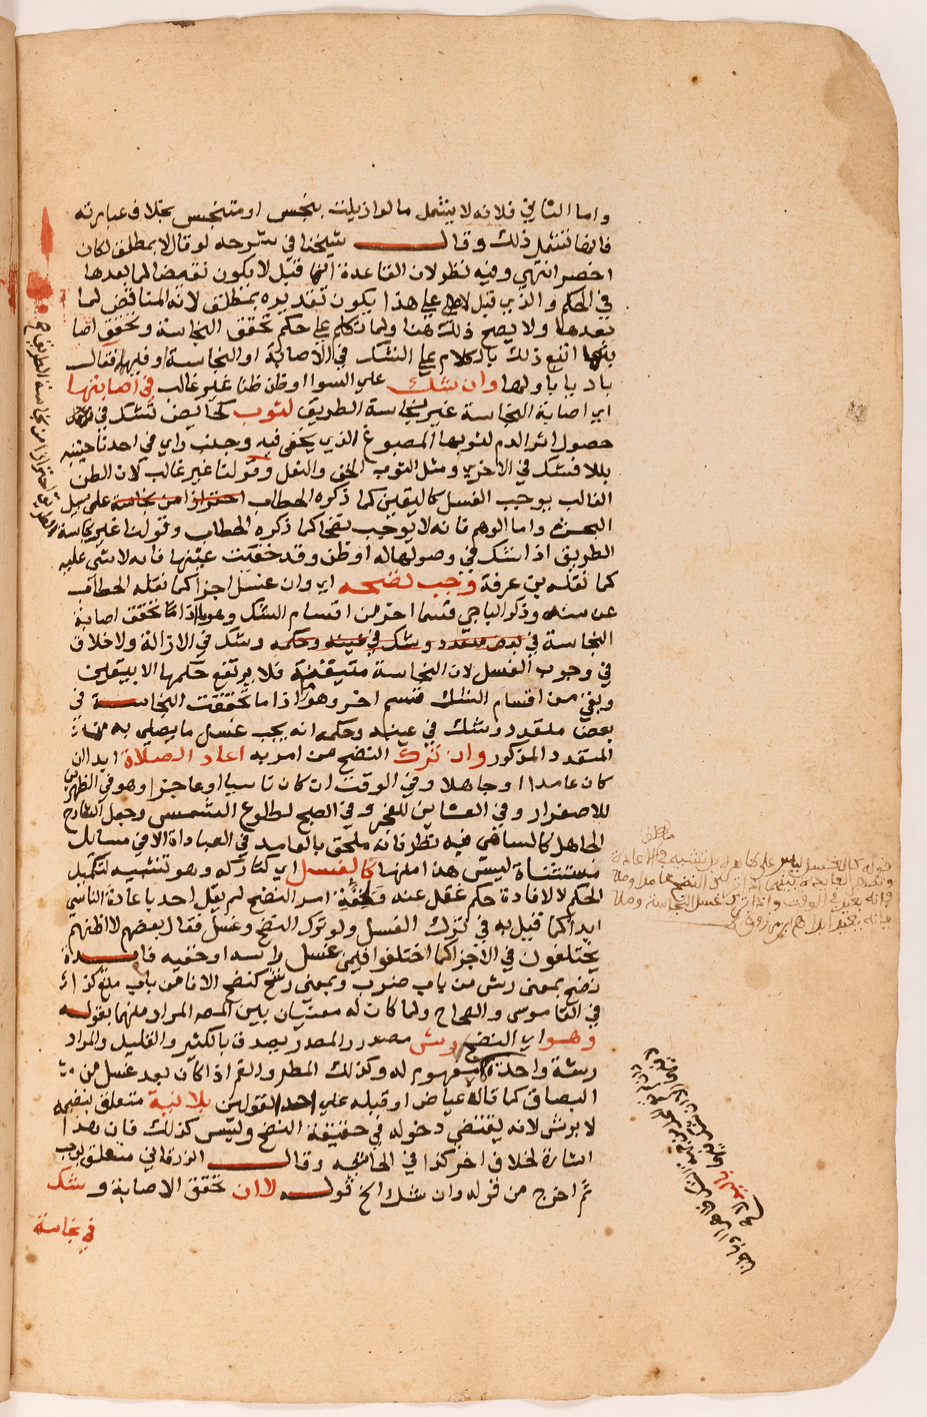 واما الثاني فلانه لا يشمل ما لو ازيلت بنجس او متنجس بخلاف عبارته
فانها تشمل ذلك وقال شيخنا في شرحه لو قال لا بمطلق لكان
اخصر انتهى وفيه نظر لان القاعدة ان ما قبل لا يكون نقيضا لما بعدها
في الحكم والذي قبل لا على هذا يكون تقديره بمطلق لانه المناقض لما
بعدها ولا يصح ذلك هنا ولما تكلم على حكم تحقق النجاسة وتحقق اصا
بتها اتبع ذلك بالكلام على الشك في الاصابة او النجاسة او فيهما فقال
باديا باولها وان شك على السوا او ظن ظنا غير غالب في اصابتها
اي اصابة النجاسة غير نجاسة الطريق لثوب كحائض تشك في
حصول اثر الدم لثوبها المصبوغ الذي يخفى فيه وجنب راى في احد جنبيه
بللا فشك في الاخرى ومثل الثوب الخف والنعل وقولنا غير غالب لان الظن
الغالب يوجب الغسل كاليقين كما ذكره الحطاب احترازا من نجاسة على سبيل
واما الوهم فانه لا يوجب نضحا كما ذكره الحطاب وقولنا غير نجاسة
الطريق اذا شك في وصولها له او ظن وقد خفيت عينها فانه لا شي عليه
كما نقله بن عرفة وجب نضحه اي وان غسل اجزا كما نقله الحطاب
عن سند وذكر الباجي قسما اخر من اقسام الشك وهو اذا تحقق اصابة
النجاسة في بعض متعدد وشك في عينه وحكمه وشك في الازالة ولا خلاف
في وجوب الغسل لان النجاسة متيقنة فلا يرتفع حكمها الا بيقين
وبقي من اقسام الشك قسم اخر وهو اذا ما تحققت النجاسة في
بعض متعدد وشك في عينه وحكمه انه يجب غسل ما يصلي به من
المتعدد المذكور وان ترك النضح من امر به اعاد الصلاة ابدا ان
كان عامدا او جاهلا وفي الوقت ان كان ناسيا او عاجزا وهو في الظهرين
للاصفرار وفي العشاين للفجر وفي الصبح لطلوع الشمس وجعل الشارح
الجاهل كالساهي فيه نظر فانه ملحق بالعامد في العبادات الا في مسائل
مستثناة ليس هذا منها كالغسل اي كتاركه وهو تشبيه لتكميل
الحكم لا لافادة حكم غفل عنه ولخفة امر النضح لم يقل احد باعادة الناسي
ابدا كما قيل به في ترك الغسل ولو ترك النضح وغسل فقال بعضهم لا اظنهم
يختلفون في الاجزا كما اختلفوا فيمن غسل راسه او خفيه فايدة
نضح بمعنى رش من باب ضرب وبمعنى رشح كنضح الانا من باب منع كذا
في القاموس والصحاح ولما كان له معنيان بين المصنف المراد منهما بقوله
وهو اي النضح رش مصدر والمصدر يصدق بالكثير والقليل والمراد
رشة واحدة مفهوم له وكذلك المطر والفم اذا كان بعد غسل من
البصاق كما قاله عياض او قبله على احد القولين بلا نية متعلق بنضحه
لا برش لانه يقتضي دخوله في حقيقة النضح وليس كذلك فان هذا
اشارة لخلاف اخر كذا في الحاشية وقال الزرقاني متعلق بوجب
ثم اخرج من قوله وان شك الخ قوله لا ان تحقق الاصابة وشك
في نجاسة